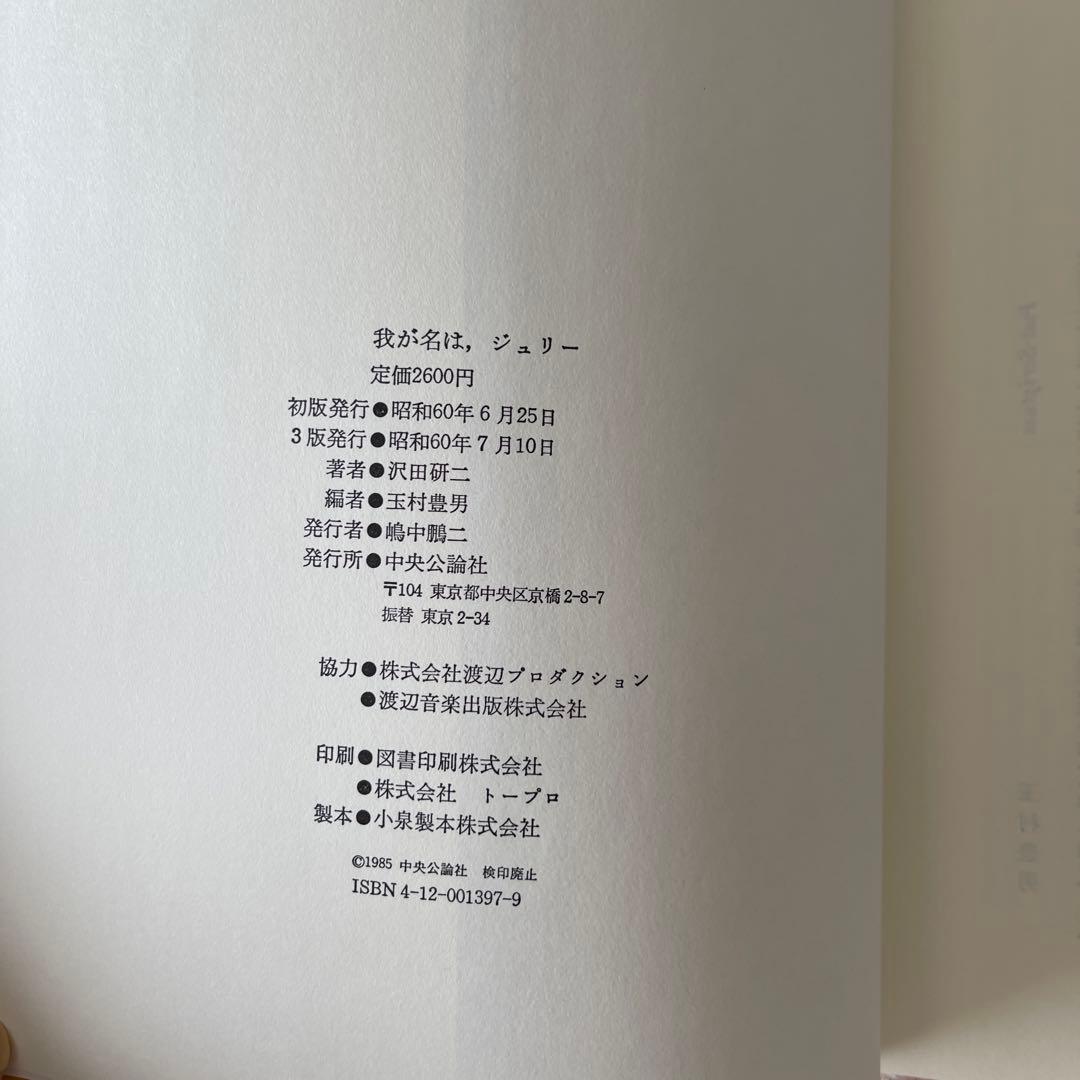 我が名は，ジュリー
定価2600円
初版発行●昭和60年6月25日
3版発行●昭和60年7月10日
著者●沢田研二
編者●玉村豊男
発行者●嶋中鵬二
発行所●中央公論社
〒104 東京都中央区京橋2-8-7
振替 東京2-34
協力●株式会社渡辺プロダクション
●渡辺音楽出版株式会社
印刷●図書印刷株式会社
●株式会社　トープロ
製本●小泉製本株式会社
©1985 中央公論社　検印廃止
ISBN 4-12-001397-9